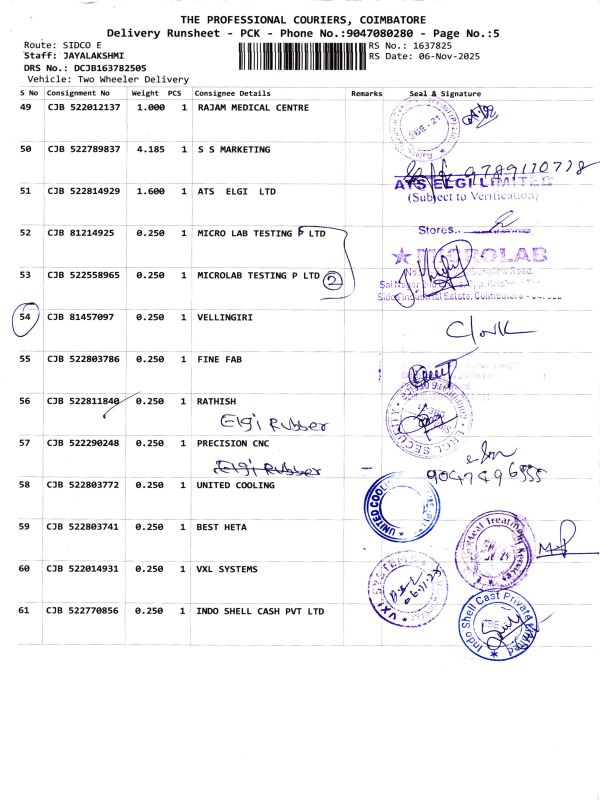 THE PROFESSIONAL COURIERS, COIMBATORE
Delivery Runsheet - PCK - Phone No.:9047080280 - Page No.:5
Route: SIDCO E
RS No.: 1637825
Staff: JAYALAKSHMI
RS Date: 06-Nov-2025
DRS No.: DCJB163782505
Vehicle: Two Wheeler Delivery
S No Consignment No Weight PCS Consignee Details Remarks Seal & Signature
49 CJB 522012137 1.000 1 RAJAM MEDICAL CENTRE
50 CJB 522789837 4.185 1 S S MARKETING
9789110778
51 CJB 522814929 1.600 1 ATS ELGI LTD
ATS ELGI LIMITED
(Subject to Verification)
52 CJB 81214925 0.250 1 MICRO LAB TESTING P LTD
Stores..
MICROLAB
53 CJB 522558965 0.250 1 MICROLAB TESTING P LTD 2
Industrial Estate, Coimbatore
54 CJB 81457097 0.250 1 VELLINGIRI
55 CJB 522803786 0.250 1 FINE FAB
56 CJB 522811840 0.250 1 RATHISH
Elgi Rubber
SECURITY
57 CJB 522290248 0.250 1 PRECISION CNC
Elgi Rubber
9047496555
58 CJB 522803772 0.250 1 UNITED COOLING
UNITED COOLING
59 CJB 522803741 0.250 1 BEST HETA
Heat Treatment Services
60 CJB 522014931 0.250 1 VXL SYSTEMS
VXL SYSTEMS
06/11/25
61 CJB 522770856 0.250 1 INDO SHELL CASH PVT LTD
Indo Shell Cast Private Limited